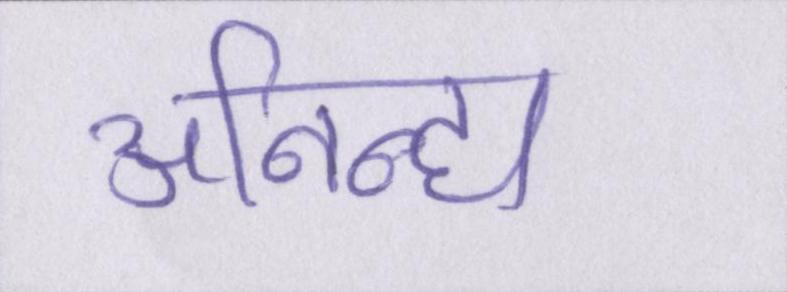 अनिन्द्य